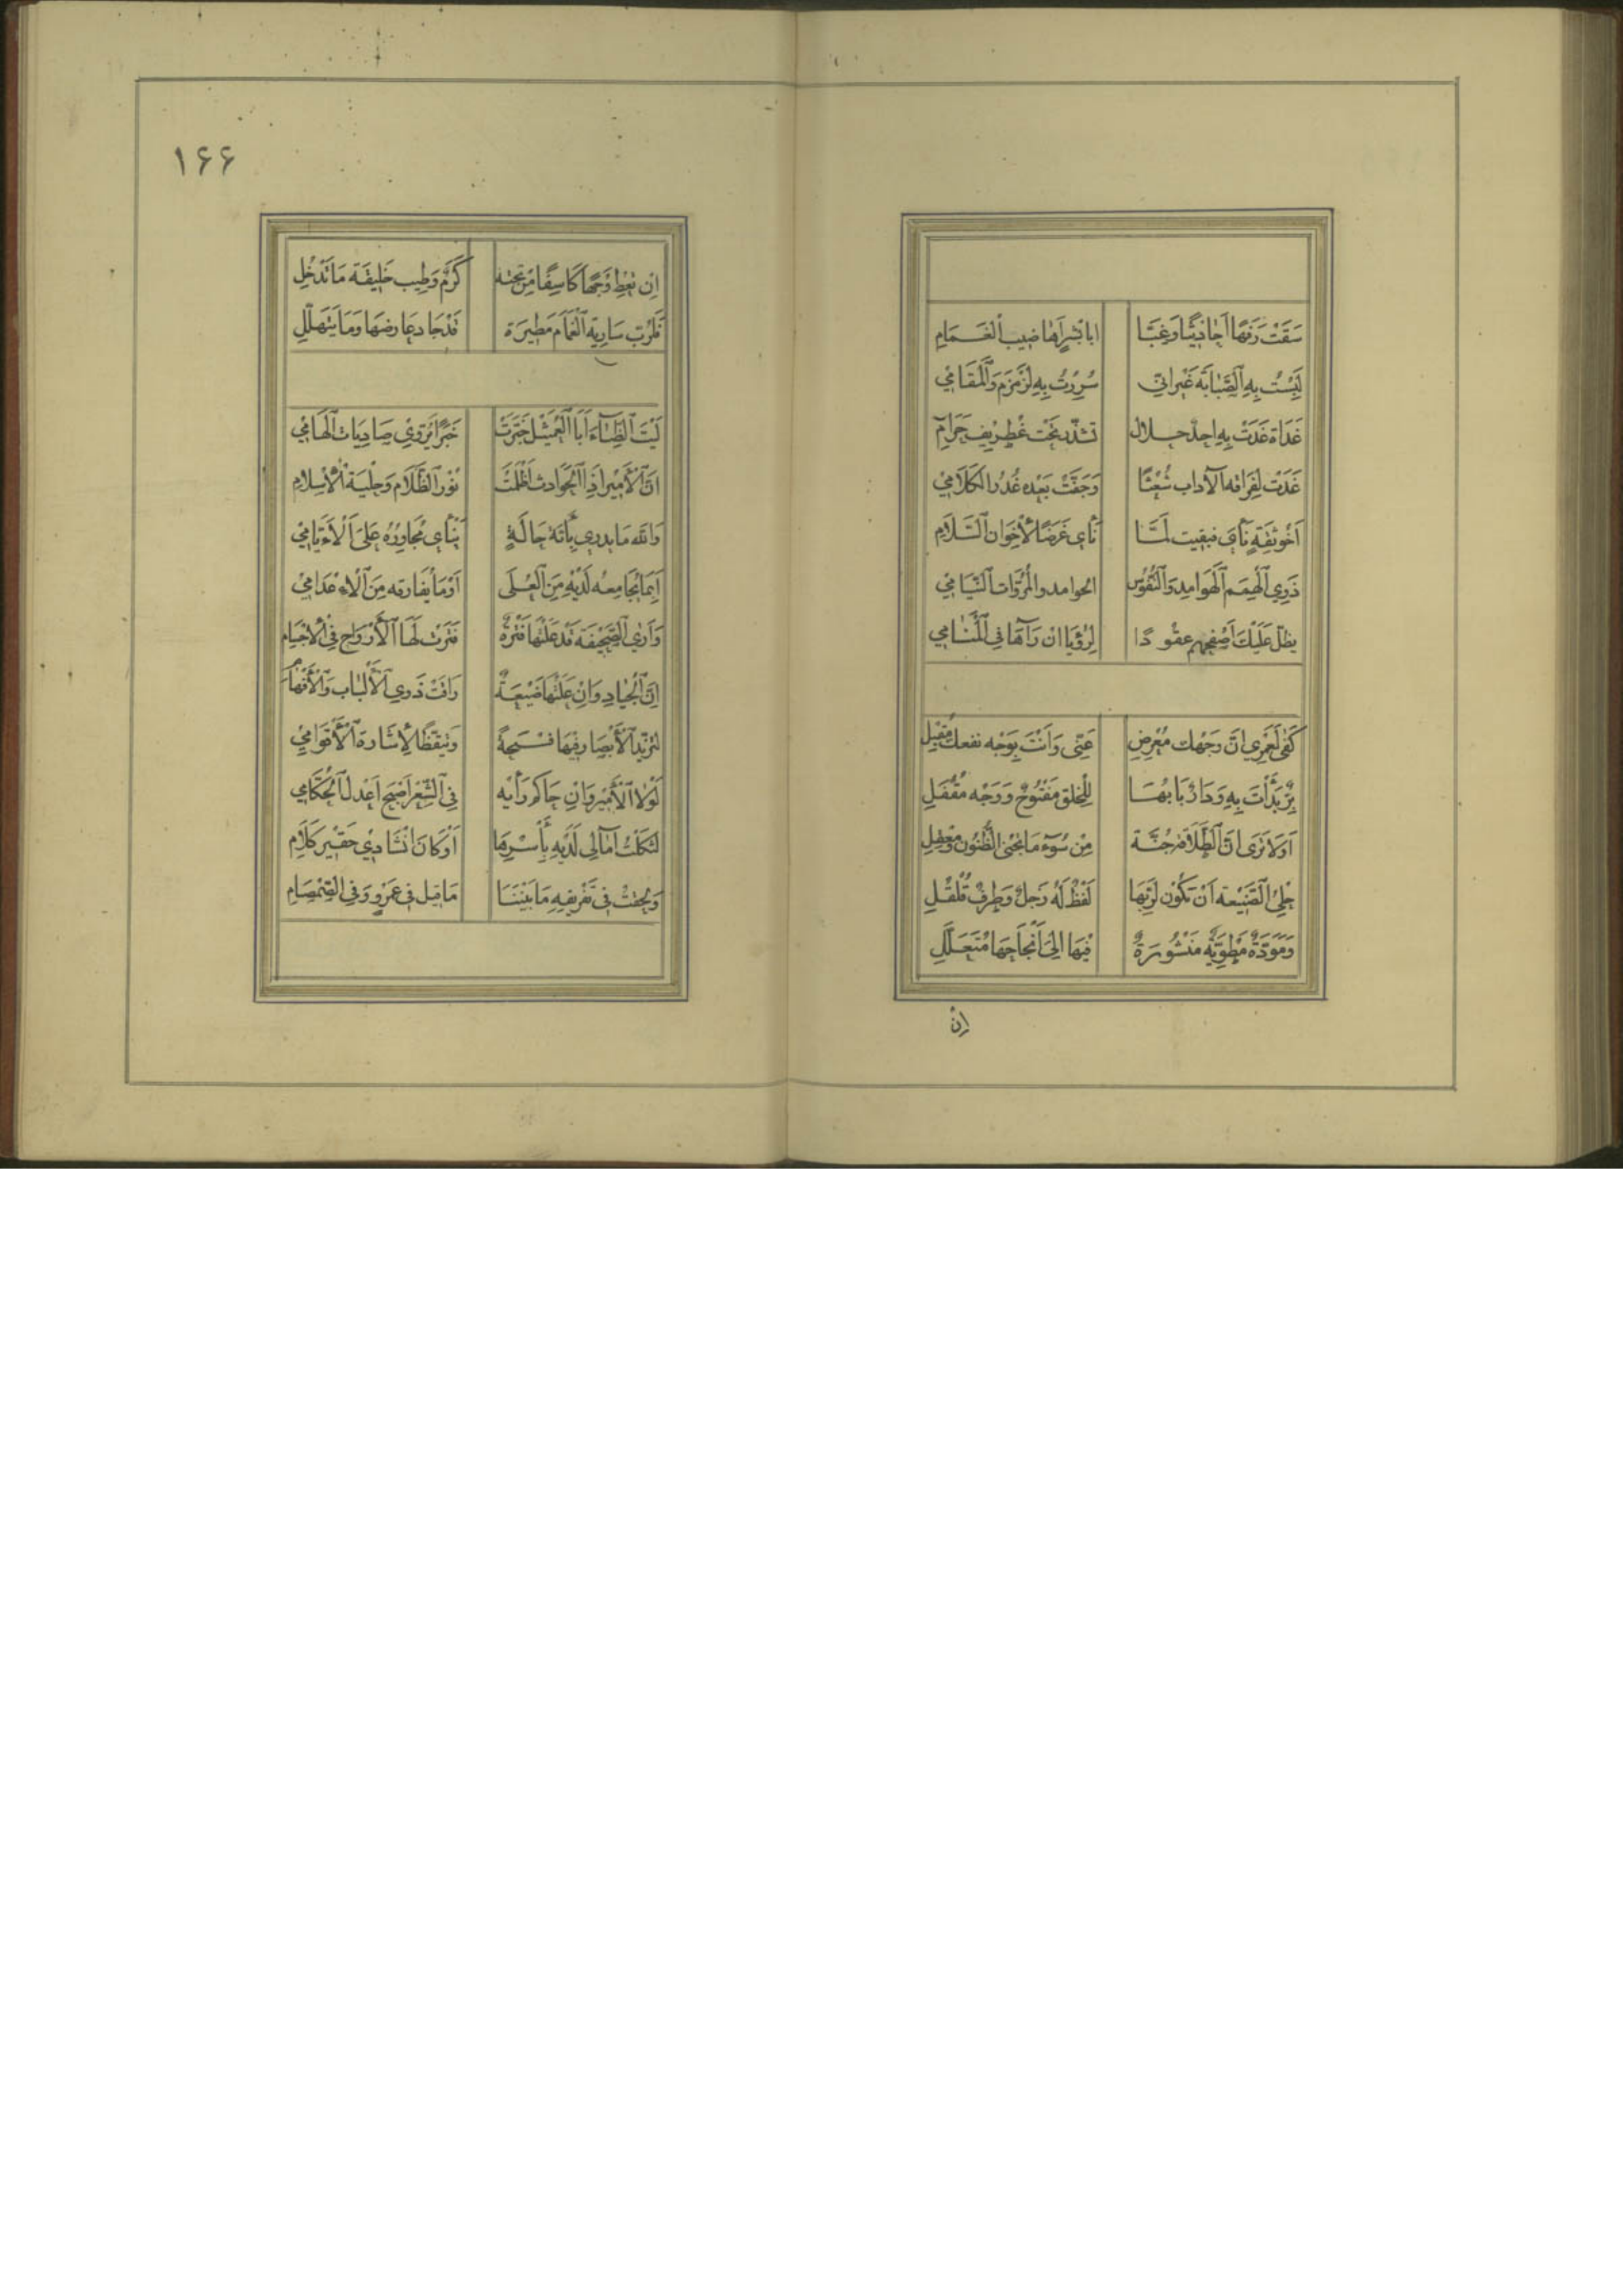 سَقَتْ رَفَهًا اَجَادَيْثًا وَغِبًّا اَبَا بَشَرٍ اَهَاضِيبُ الْغَمَامِ
لَبِسْتُ بِهِ الصَّبَابَةَ غَيْرَ اَنِّي سُرِرْتُ بِهِ لِزَمْزَمَ وَالْمَقَامِي
غَدَاةَ غَدَتْ بِهِ اُجُدٌ حلال تحْتَ غطريف حَرَامِ
غَدَتْ لِفِرَاقِهِ الآداب شُعْثًا وَجَفَّتْ بَعْدَه غُدُر الكَلَامِي
اَخُو ثِقَةٍ نَأى فبقيت لَمَّا نَأى غَرَضًا لِأَخْوَانِ السَّلَامِ
ذَوِي الْهِمَمِ الْهَوَامِدِ وَالنُّفُوسِ الجوامد والمُرُوَّاتِ النِّيَامِي
يظلّ عَلَيْكَ اَصْفَحهم حقودًا لِرُؤْيَا ان رَآهَا فِي الْمَنَامِي
كَفَى لَعَمْرِي اَنَّ وَجْهك مُعْرِضٌ عَنِّي وَأَنْتَ بِوَجْهِ نفعك مُقْبِلِ
بِرٌّ بَدَأْتَ بِهِ وَدَارٌ بَابُهَا لِلْخَلْقِ مَفْتُوحٌ وَوَجْه مُقْفَلِ
اَوَلَا تَرَى اَنَّ الطَّلَاقَة جُنَّة مِنْ سُوءِ مَا تجني الظُّنُونُ وَمَعْقِلِ
حَلْيُ الصَّنِيعَة اَنْ تَكُون لِرَبِّهَا لَفْظٌ لَهُ زَجِلٌ وَطَرْفٌ قُلْقُلِ
وَمَوَدَّةٌ مَطْوِيَّة مَنْشُورَةٌ فِيهَا اِلَى اِنْجَاحِهَا مُتَعَلِّلِ
اِن
١۶۶
اِن تُعْطِ وَجْهًا كَاسِفًا مِن تَحْتِهِ كَرَمٌ وَطِيبُ خَلِيقَة مَا تَدْخُلِ
فَلَرُبَّ سَارِيَة الْغَمَام مَطِيرَة قَدْ جَادَ عَارِضهَا وَمَا يَتَهَلَّلِ
لَيْتَ الظِّبَاءَ اَبَا الْعَمَيْثَل خَبَّرَتْ خَبَرًا يُرَوِّي صَادِيَات الْهَامِي
اِنَّ الْأَمِيرَ اِذَا الْحَوَادِث اَظْلَمَتْ نُوْر الظَّلَام وَحِلْيَة الْأِسْلَامِ
وَاللَّه مَا يدري بِأَيَّة حَالَةٍ يَنْأَى مُجَاوِرُهُ عَلَى الْأَيَّامِي
اَبِمَا يُجَامِعه لَدَيْهِ مِنَ الْعُلَى اَوْ مَا يُفَارِقه مِنَ الْأِعْدَامِي
وَاَرَى الصَّحِيفَة قَدْ عَلَتْهَا فَتْرَةٌ فَتَرَتْ لَهَا الْأَرْوَاحُ فِي الْأَجْسَامِ
اِنَّ الْجِيَادَ وَاِن عَلَتْهَا صَنْعَةٌ رَاقَتْ ذَوِي الْأَلْبَابِ وَالْأَفْهَام
لَتَزِيدُ الْأَبْصَار فِيهَا فُسْحَةً وَتَيَقُّظًا لِأِشَارَةِ الْأَقْوَامِي
لَوْلَا الْأَمِيرُ وَاَنْ حَاكِم رَأْيِه فِي الشِّعْرِ اَصْبَحَ اَعْدَل الْحُكَّامِي
لَثَكَلْتُ اٰمَالِي لَدَيْهِ بِأَسْرِهَا اَوْ كَانَ اِنْشَادِي حَقِير كَلَامِ
وَلَخِفْتُ فِي تَفْرِيقِهِ مَا بَيْنَنَا مَا قِيل فِي عَمْرٍو وَفِي الصَّمْصَامِ